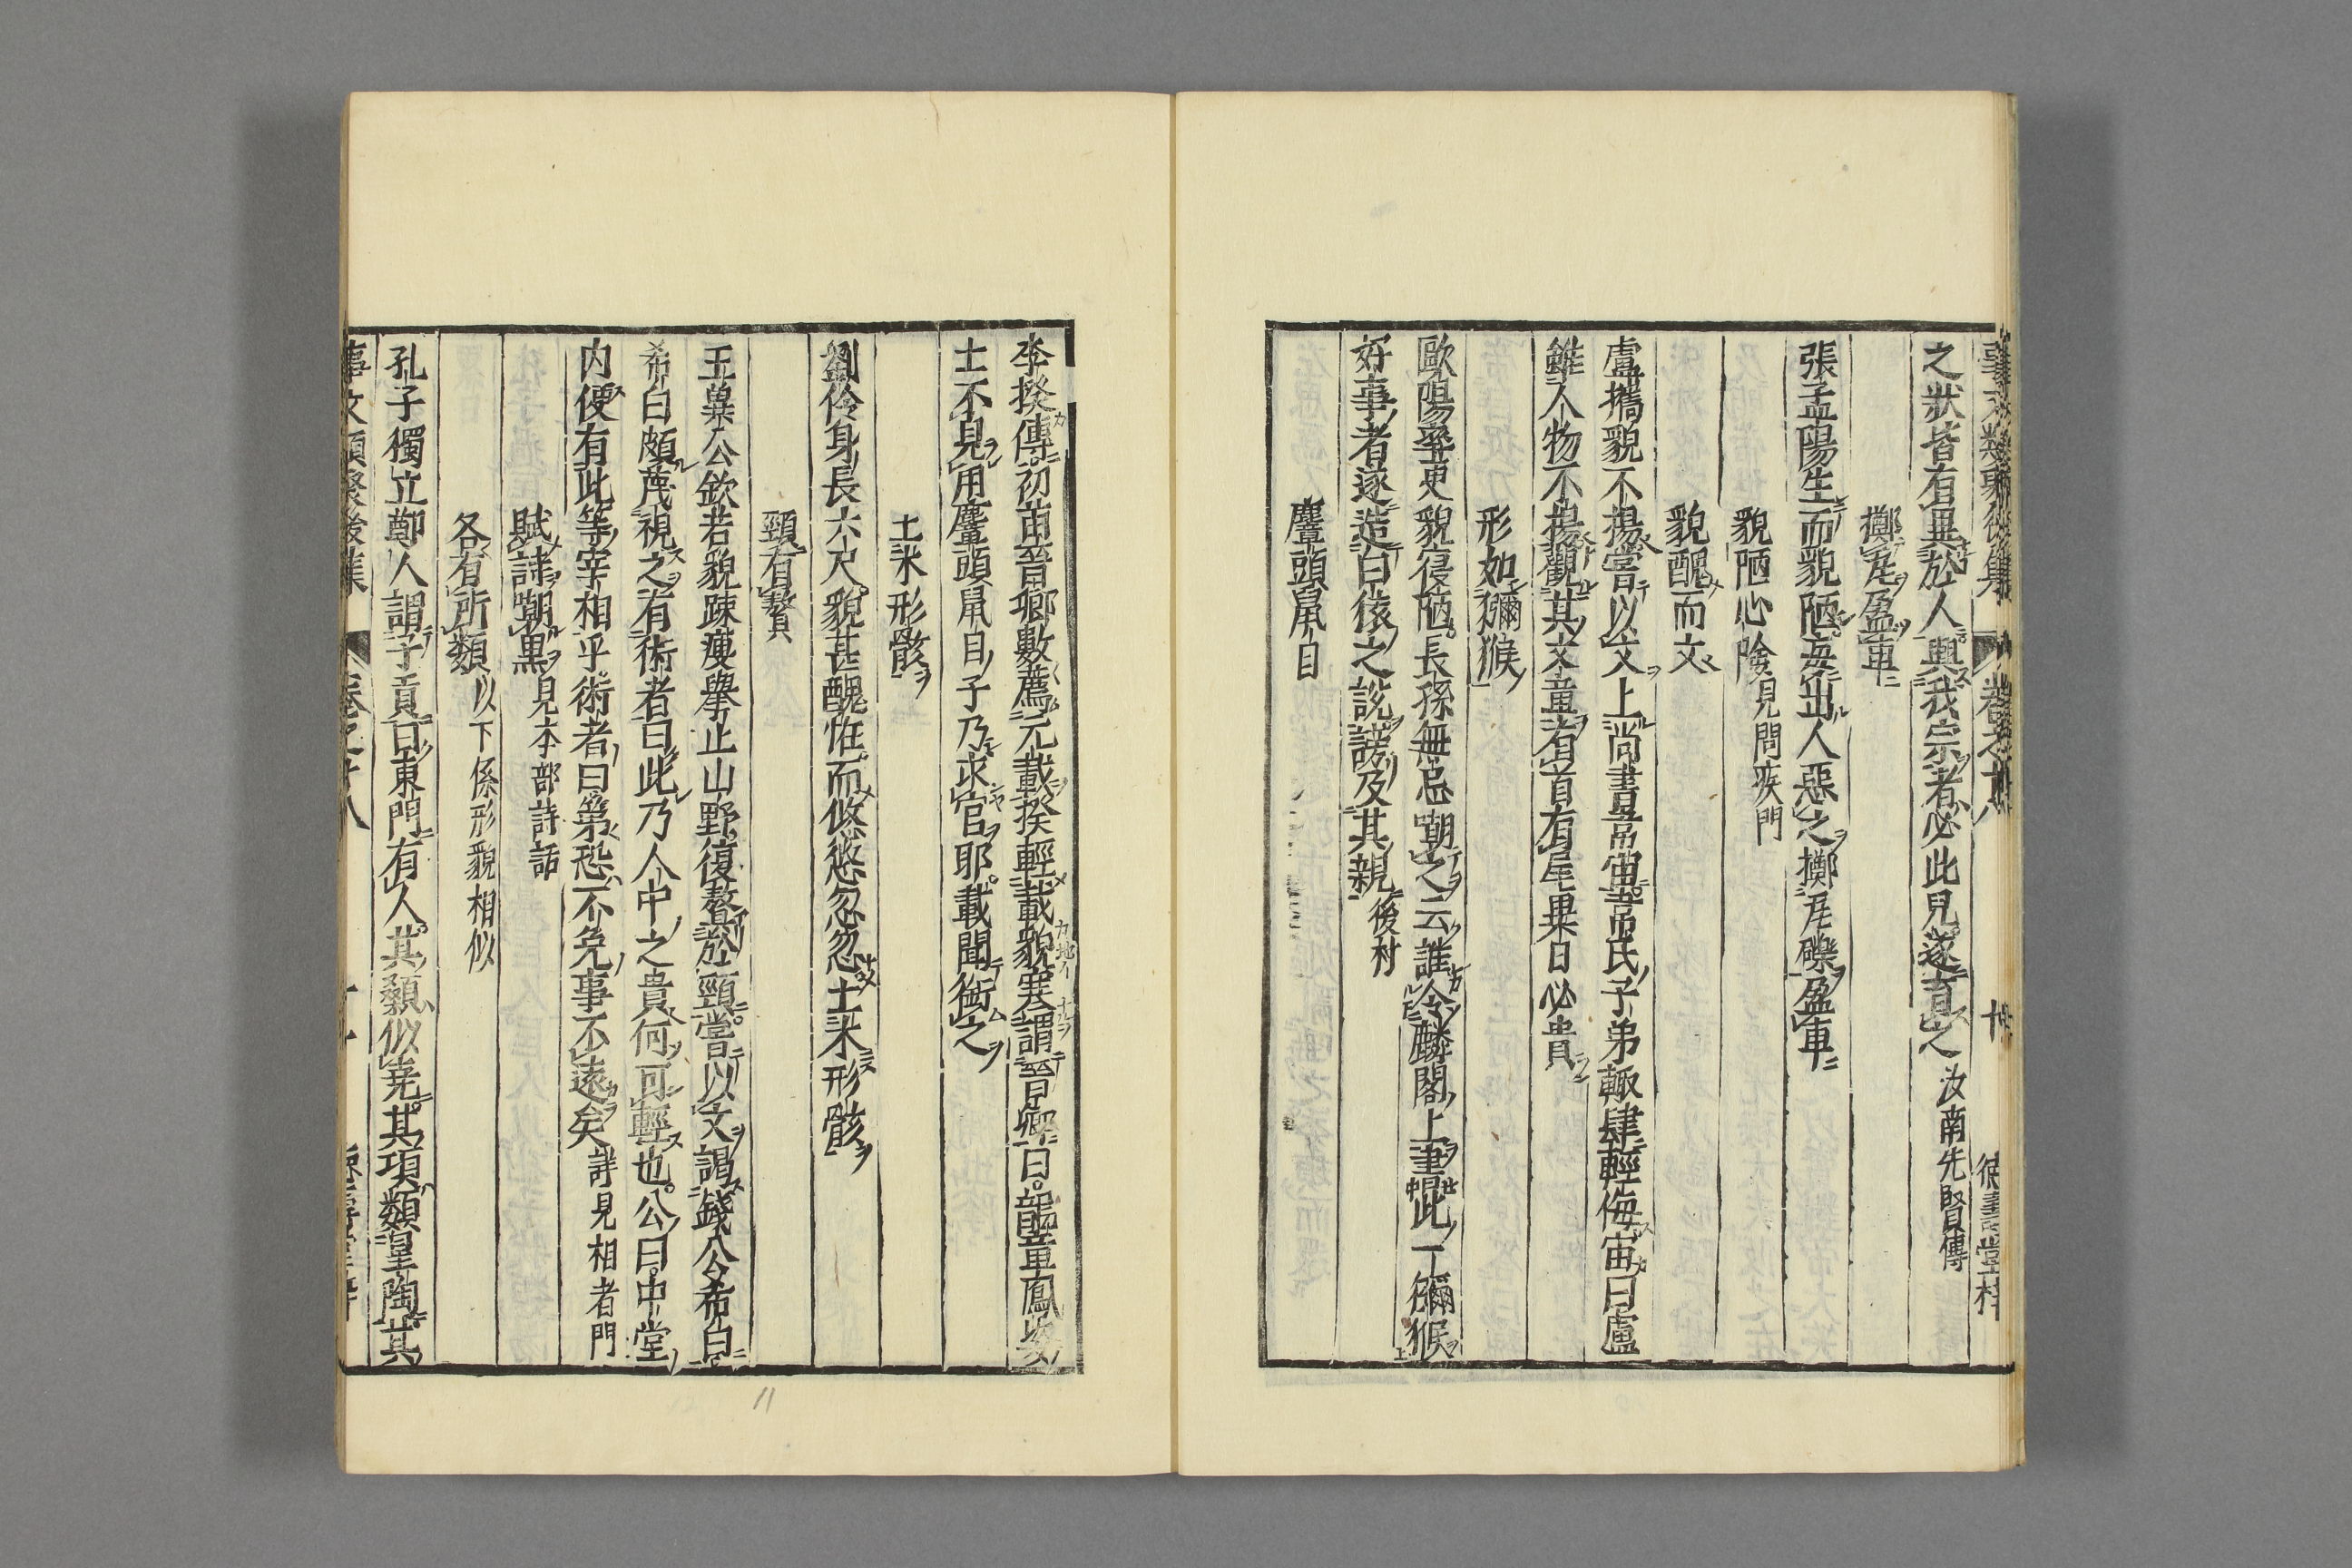 事文類聚後集 卷之十八 德壽堂梓
之狀皆有異於人興我宗者必此兒遂育之 汝南先賢傳
擲瓦盈車
張孟陽生而貌陋每出人惡之擲瓦礫盈車
貌陋心險 見問疾門
貌醜而文
盧攜貌不揚嘗以文上尚書韋宙韋氏子弟輙肆輕侮宙曰盧
雖人物不揚觀其文章有首有尾異日必貴
形如獼猴
歐陽率更貌寢陋長孫無忌嘲之云誰令麟閣上畫此一獼猴
好事者遂造白猿之說謗及其親 後村
麞頭鼠目
李揆傳初苗晉卿數薦元載揆輕載貌寒謂晉卿曰龍章鳳姿
士不見用麞頭鼠目子乃求官耶載聞銜之
土木形骸
劉伶身長六尺貌甚醜恠而攸悠忽忽土木形骸
頸有贅
王兾公欽若貌踈瘦擧止山野復贅於頸嘗以文謁錢公希白
希白頗蔑視之有術者曰此乃人中之貴何可輕也公曰中堂
内便有此等宰相乎術者曰第恐不免事不遠矣 詳見相者門
賦詩嘲黒 見本部詩話
各有所類 以下係形貌相似
孔子獨立鄭人謂子貢曰東門有人其顙似堯其項類皋陶其
事文類聚後集 卷之十八
11